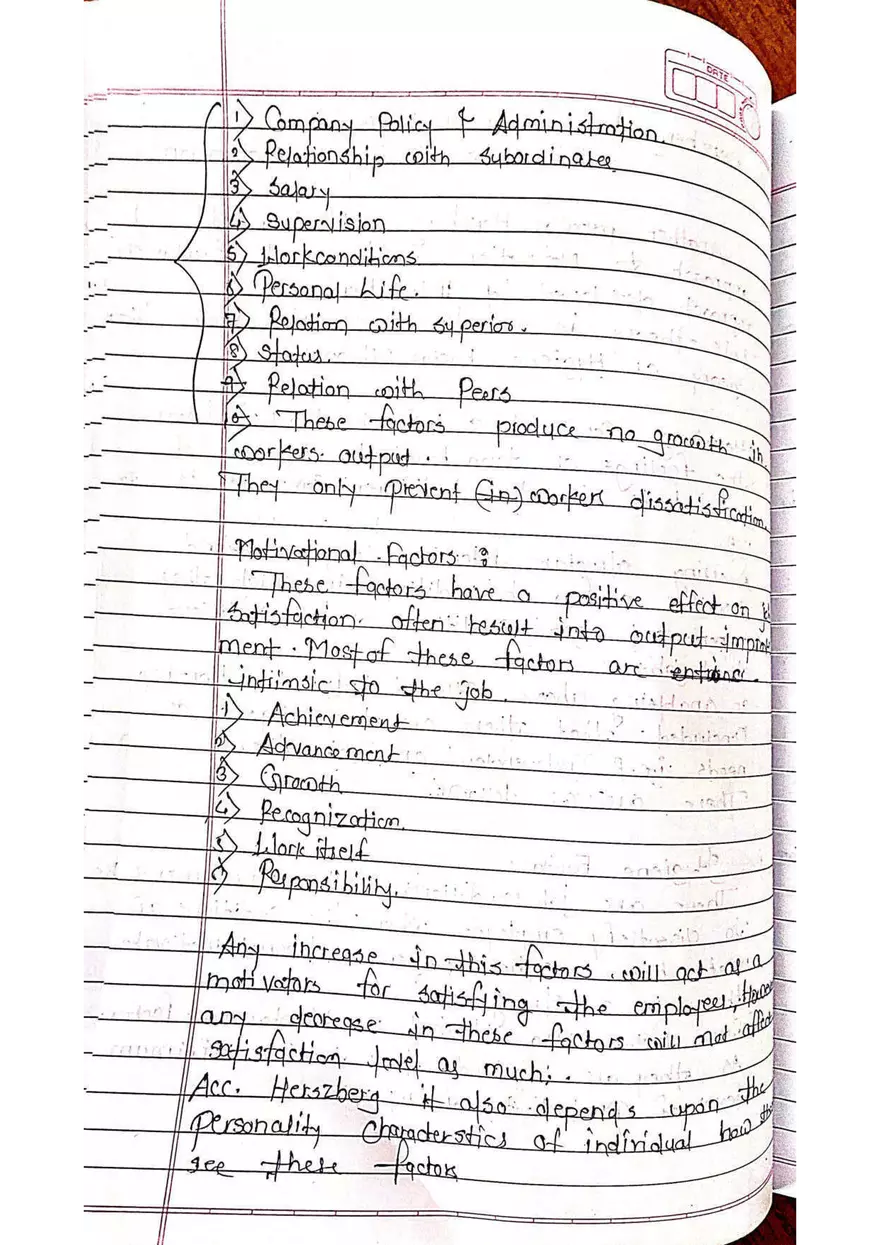 DATE
1) Company Policy & Administration.
2) Relationship with subordinates
3) Salary
4) Supervision
5) Workconditions
6) Personal Life.
7) Relation with superior.
8) Status.
9) Relation with Peers
10) These factors produce no growth in
workers output.
They only prevent (in) workers dissatisfication.
Motivational Factors :
These factors have a positive effect on
satisfaction often result into output
ment. Most of these factors are
intrimsic to the job.
1) Achievement
2) Advancement
3) Growth
4) Recognization.
5) Work itself
6) Responsibility.
Any increase in this factors will act as a
motivators for satisfying the employees,
any decrease in these factors will not affect
satisfaction level as much.
Acc. Herszberg it also depends upon the
Personality Characterstics of individual how
see these factors